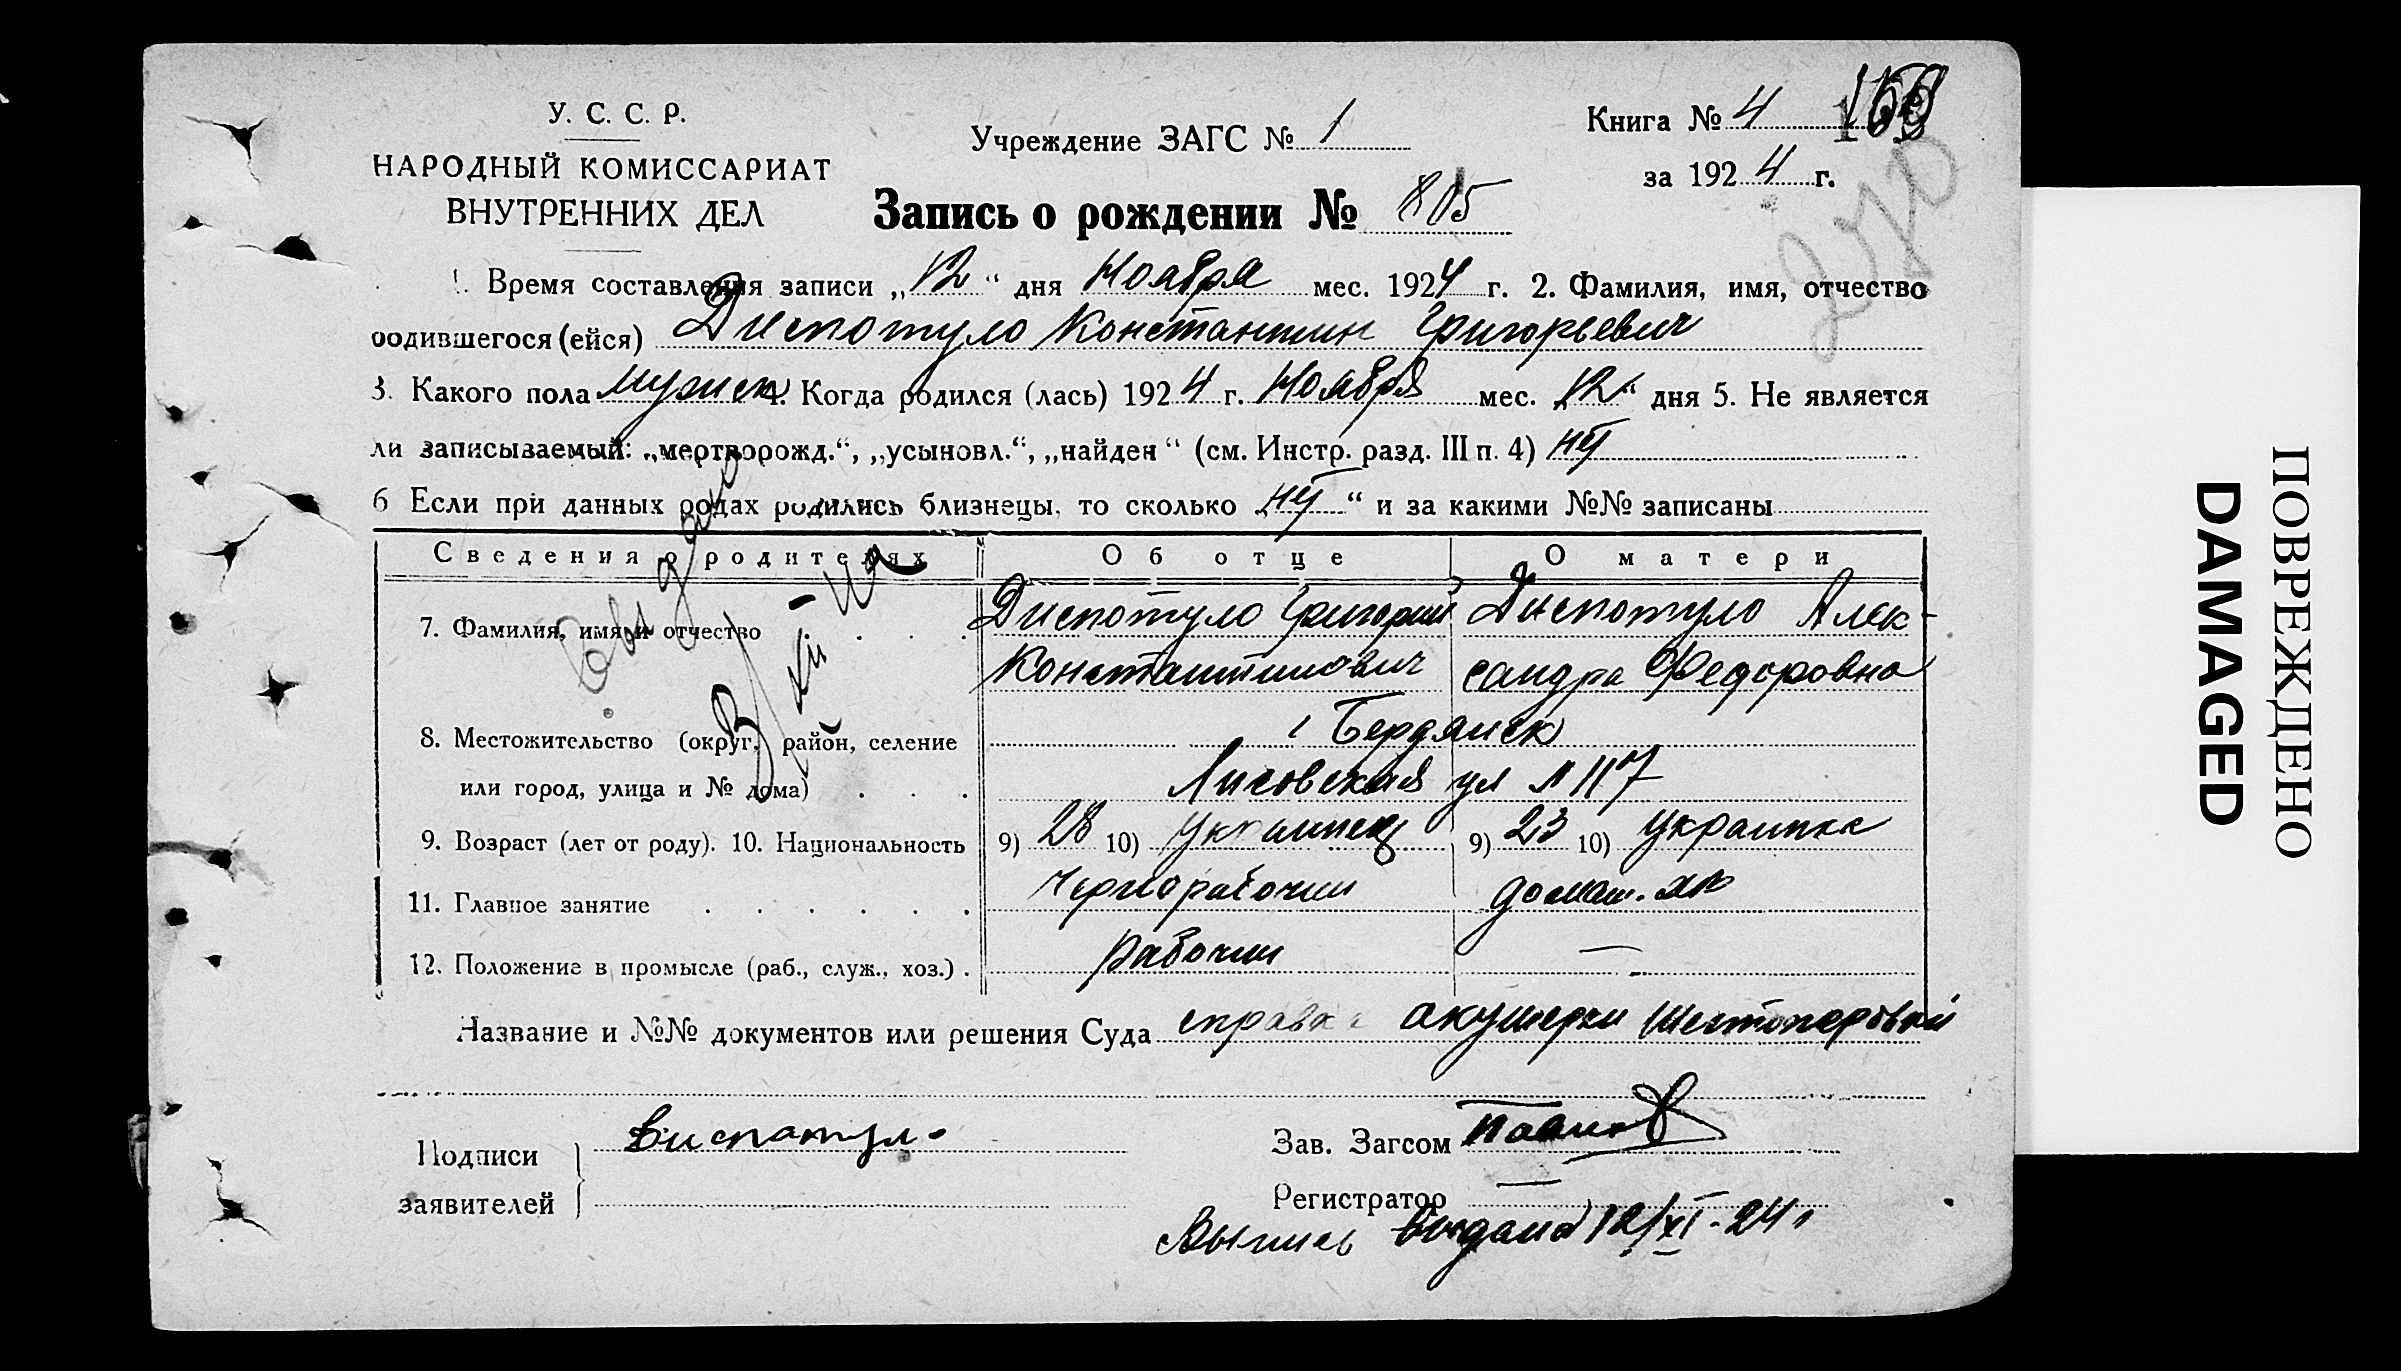 У. С. С. Р.
НАРОДНЫЙ КОМИССАРИАТ
ВНУТРЕННИХ ДЕЛ
Учреждение ЗАГС № 1
Книга № 4
за 1924 г.
Запись о рождении № 805
1. Время составления записи „12“ дня Ноября мес. 1924 г. 2. Фамилия, имя, отчество
родившегося (ейся) Диспотуло Константин Григорьевич
3. Какого пола мужск 4. Когда родился (лась) 1924 г. Ноября мес. „12“ дня 5. Не является
ли записываемый: „мертворожд.“, „усыновл.“, „найден“ (см. Инстр. разд. III п. 4) нет
6 Если при данных родах родились близнецы, то сколько „нет“ и за какими №№ записаны
Сведения о родителях Об отце О матери
7. Фамилия, имя и отчество Диспотуло Григорий Диспотуло Алек-
Константинович сандра Федоровна
8. Местожительство (округ, район, селение г Бердянск
или город, улица и № дома) Лисовская ул № 117
9. Возраст (лет от роду). 10. Национальность 9) 28 10) Украинец 9) 23 10) Украинка
11. Главное занятие Чернорабочий домаш. хоз
12. Положение в промысле (раб., служ., хоз.) Рабочий —
Название и №№ документов или решения Суда справка акушерки Шестоперовой
Подписи
заявителей
Диспотуло
Зав. Загсом
Регистратор —
Выпись выдана 12/XI-24 г
Выдано
270
ПОВРЕЖДЕНО
DAMAGED